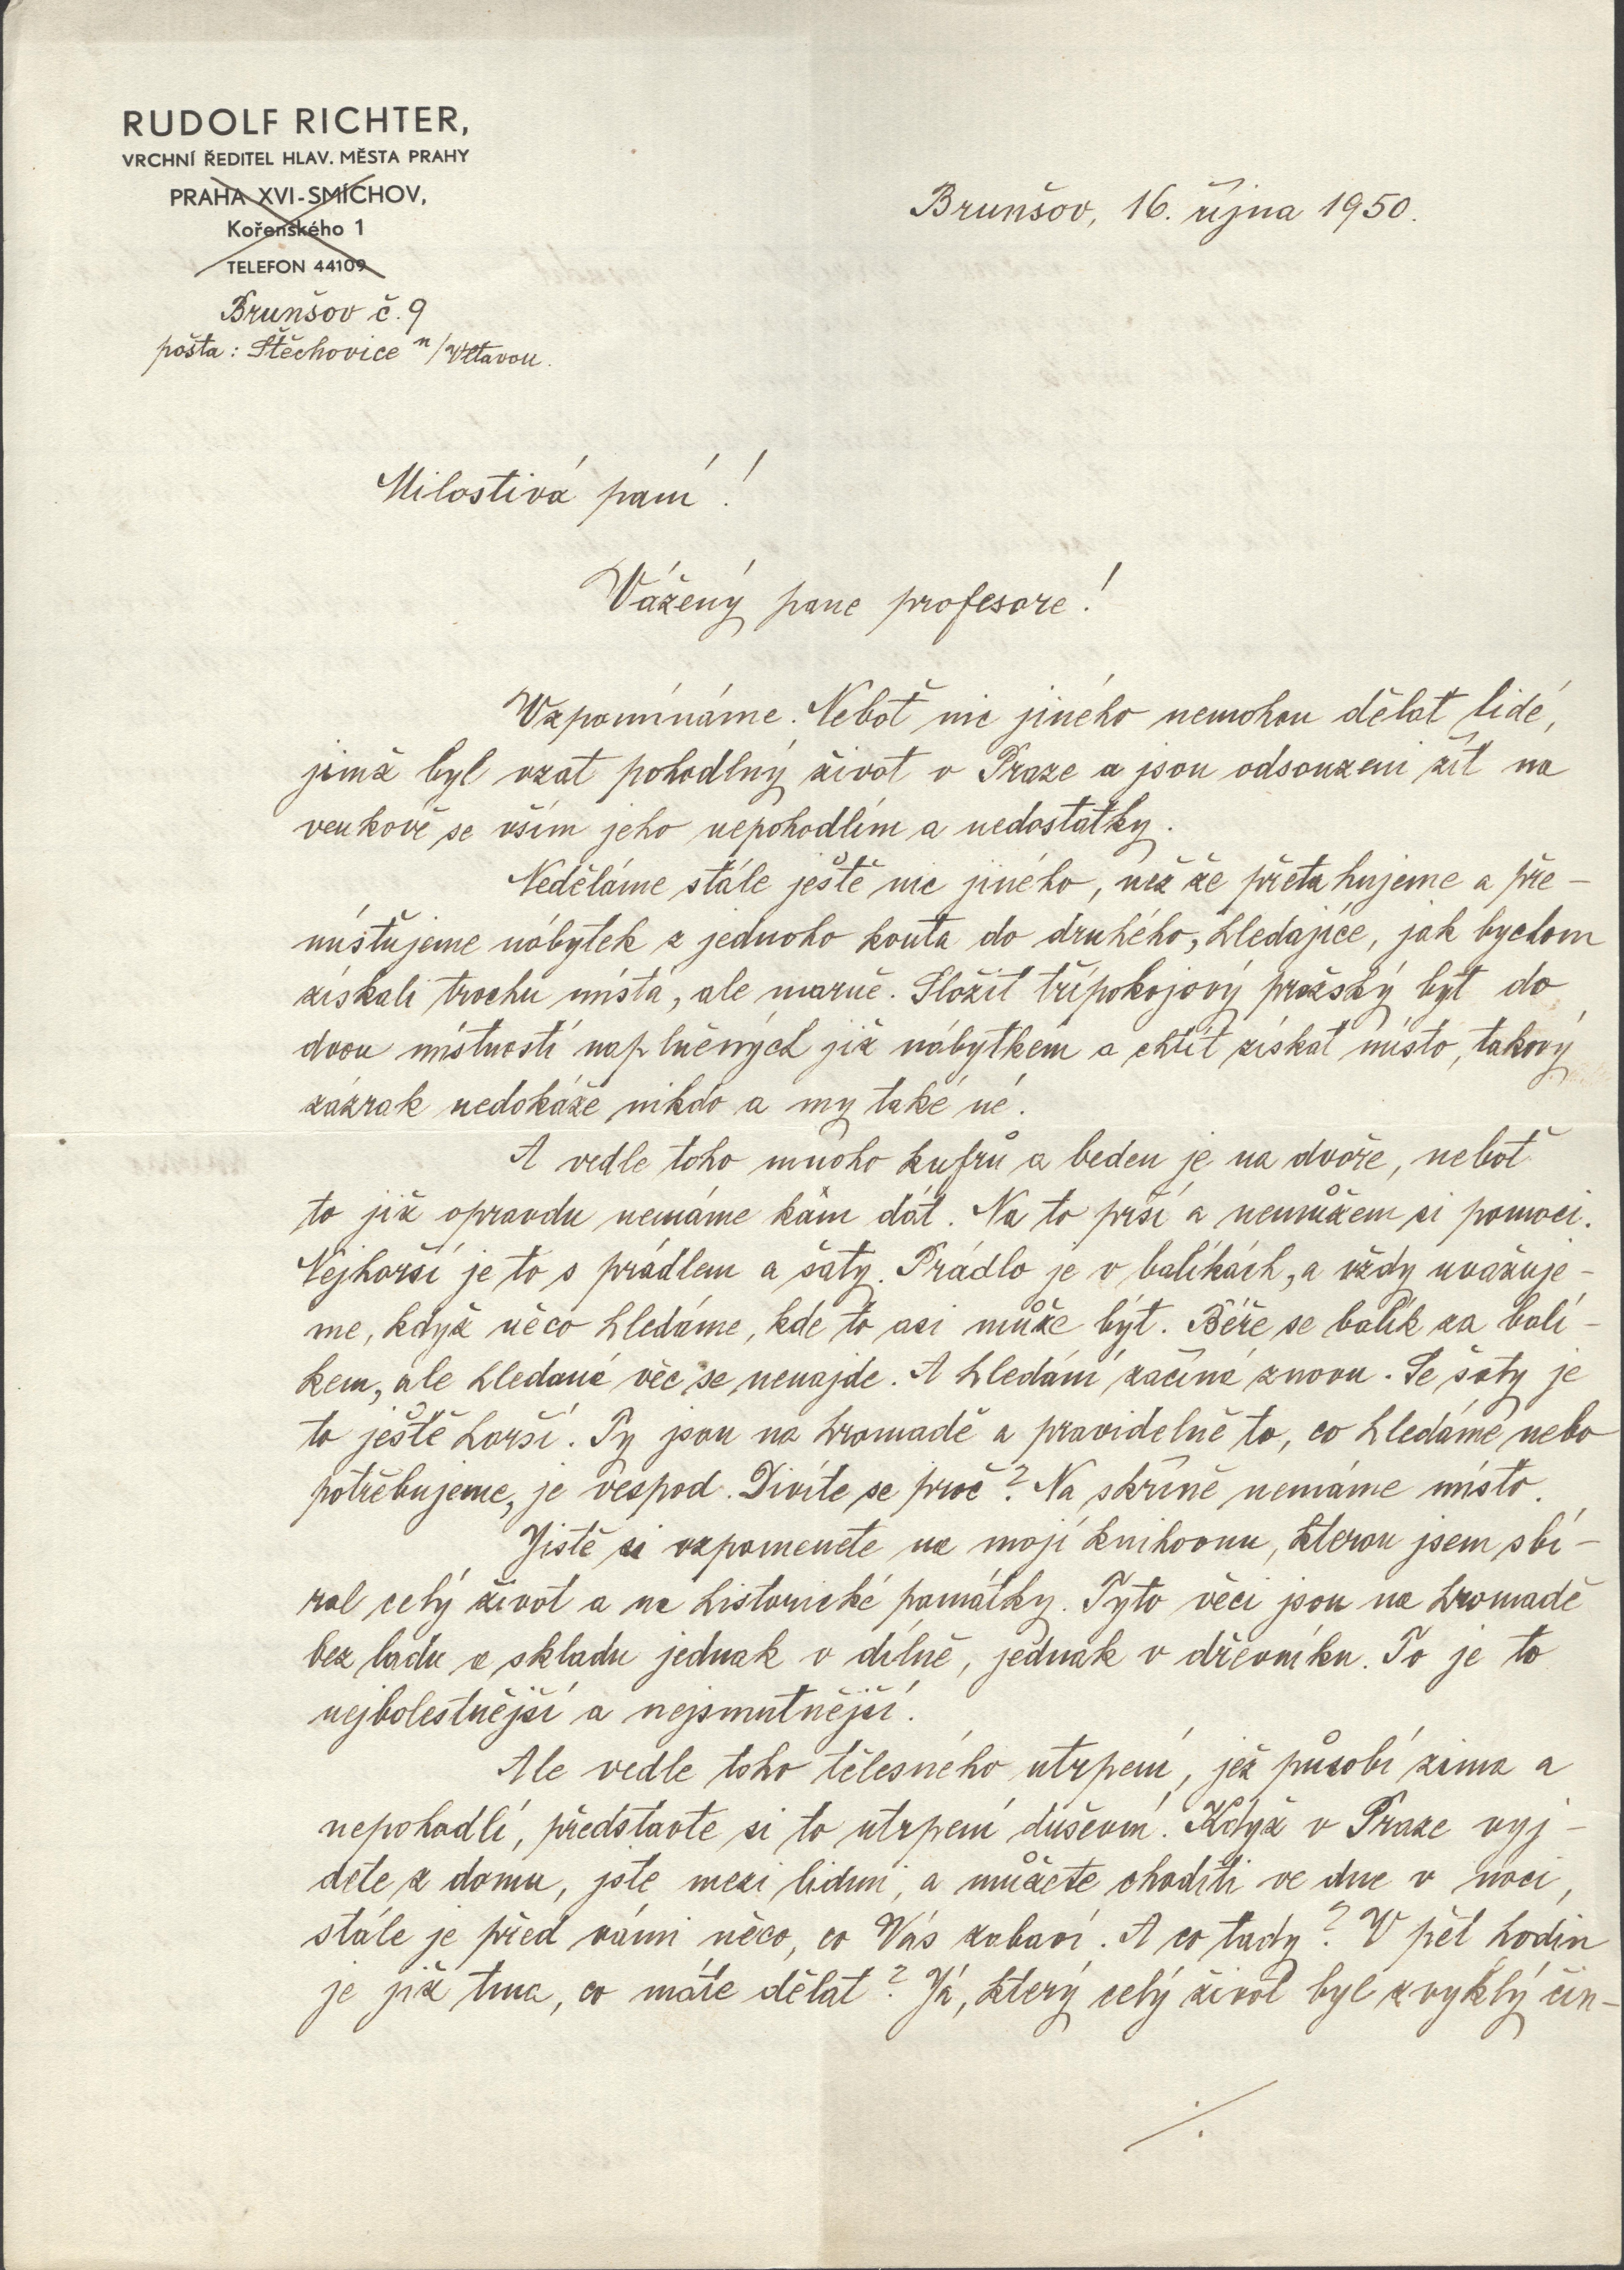 RUDOLF RICHTER,
VRCHNÍ ŘEDITEL HLAV. MĚSTA PRAHY
PRAHA XVI-SMÍCHOV,
Kořenského 1
TELEFON 44109
Brunšov č. 9
pošta: Štěchovice n/Vltavou.
Brunšov, 16. října 1950.
Milostivá paní!
Vážený pane profesore!
Vzpomínáme. Neboť nic jiného nemohou dělat lidé,
jimž byl vzat pohodlný život v Praze a jsou odsouzeni žít na
venkově se vším jeho nepohodlím a nedostatky.
Neděláme stále ještě nic jiného, než že přetahujeme a pře-
misťujeme nábytek z jednoho kouta do druhého, hledajíce, jak bychom
získali trochu místa, ale marně. Složit třípokojový pražský byt do
dvou místností naplněných již nábytkem a chtít získat místo, takový
zázrak nedokáže nikdo a my také ne.
A vedle toho mnoho kufrů a beden je na dvoře, neboť
to již opravdu nemáme kam dát. Na to prší a nemůžem si pomoci.
Nejhorší je to s prádlem a šaty. Prádlo je v balíkách, a vždy uvažuje-
me, když něco hledáme, kde to asi může být. Béře se balík za balí-
kem, ale hledaná věc se nenajde. A hledání začíná znovu. Se šaty je
to ještě horší. Ty jsou na hromadě a pravidelně to, co hledáme nebo
potřebujeme, je vespod. Divíte se proč? Na skříně nemáme místo.
Jistě si vzpomenete na moji knihovnu, kterou jsem sbí-
ral celý život a na historické památky. Tyto věci jsou na hromadě
bez ladu a skladu jednak v dílně, jednak v dřevníku. To je to
nejbolestnější a nejsmutnější.
Ale vedle toho tělesného utrpení, jež působí zima a
nepohodlí, představte si to utrpení duševní. Když v Praze vyj-
dete z domu, jste mezi lidmi, a můžete choditi ve dne v noci,
stále je před vámi něco, co Vás zabaví. A co tady? V pět hodin
je již tma, co máte dělat? Já, který celý život byl zvyklý čin-
./.